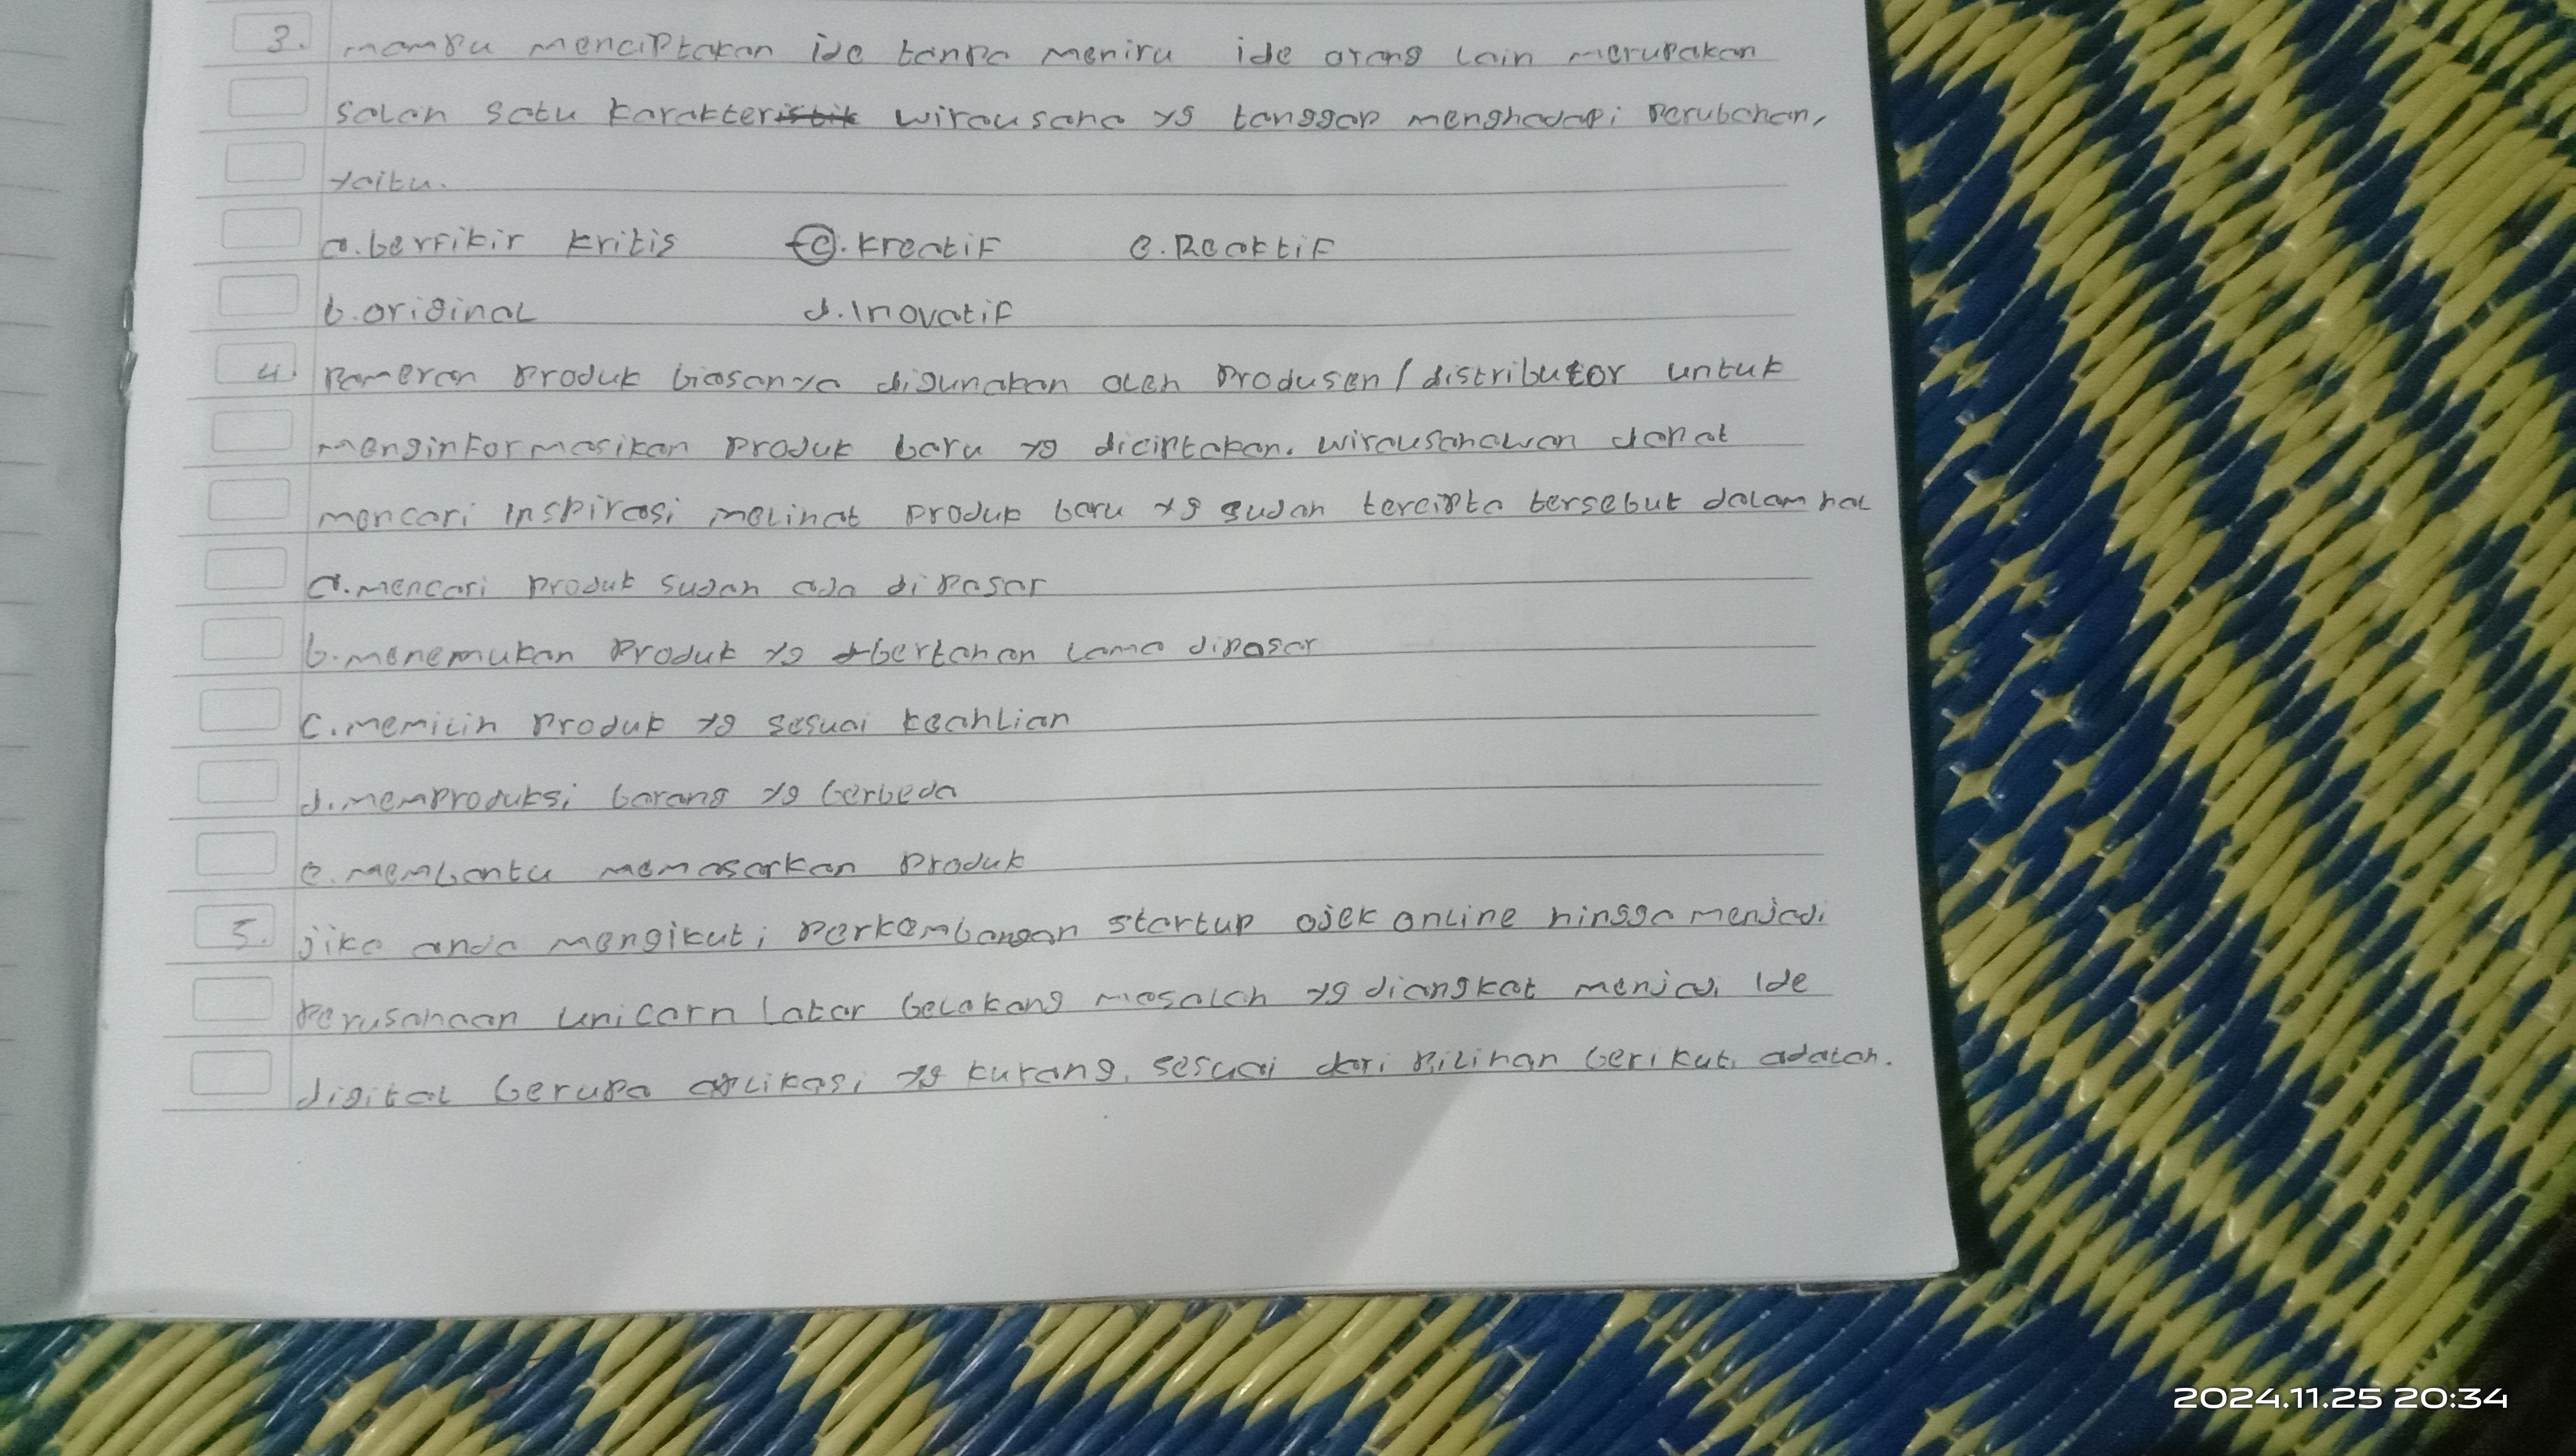 3. mampu menciptakan ide tanpa meniru ide orang lain merupakan
salah satu karakteristik wirausaha yg tanggap menghadapi perubahan,
yaitu.
a. berfikir kritis c. kreatif e. Reaktif
b. original d. Inovatif
4. Pameran produk biasanya digunakan oleh produsen / distributor untuk
menginformasikan produk baru yg diciptakan. wirausahawan dapat
mencari inspirasi melihat produk baru yg sudah tercipta tersebut dalam hal
a. mencari produk sudah ada di pasar
b. menemukan produk yg bertahan lama dipasar
c. memilih produk yg sesuai keahlian
d. memproduksi barang yg berbeda
e. membantu memasarkan produk
5. jika anda mengikuti perkembangan startup ojek online hingga menjadi
perusahaan unicorn latar belakang masalah yg diangkat menjadi ide
digital berupa aplikasi yg kurang sesuai dari pilihan berikut, adalah.
2024.11.25 20:34